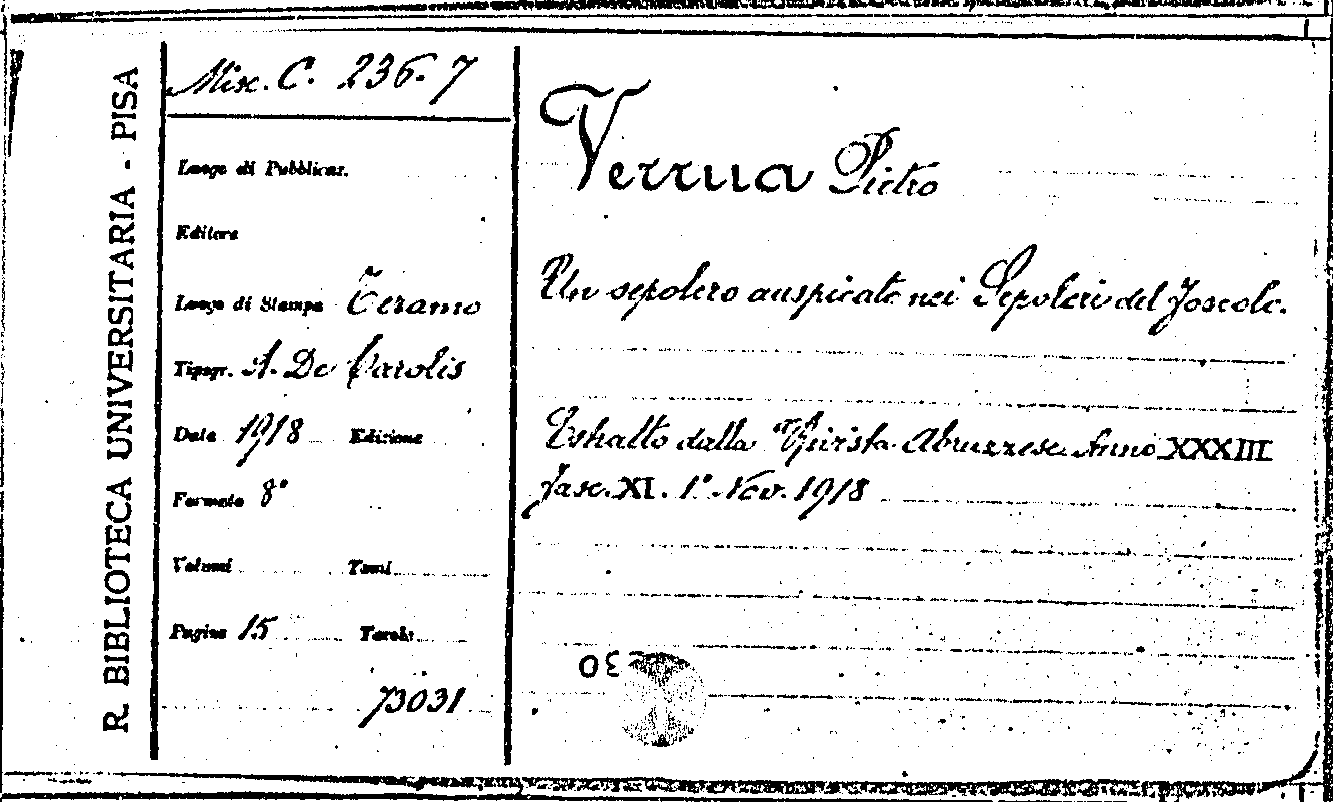 R. BIBLIOTECA UNIVERSITARIA - PISA
Misc. C. 236. 7
Luogo di Pubblicaz.
Editore
Luogo di Stampa Teramo
Tipogr. A. De Carolis
Data 1918 Edizione
Formato 8°
Volumi Tomi
Pagine 15 Tavole
73031
Verrua Pietro
Un sepolcro auspicato nei Sepolcri del Foscolo.
Estratto dalla "Rivista Abruzzese Anno XXXIII
Fasc. XI. 1° Nov. 1918